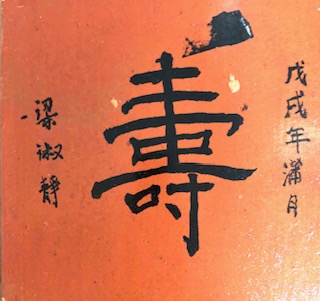 戊戌年满月
壽
梁淑靜